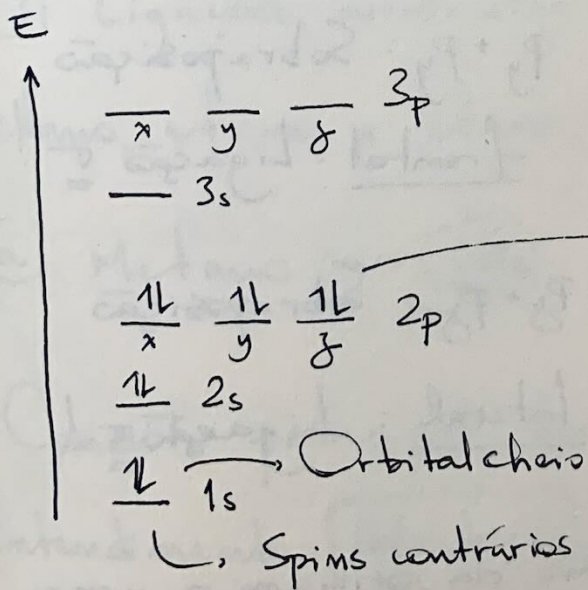 E
3p
x y z
3s
1L 1L 1L 2p
x y z
1L 2s
1L 1s → Orbital cheio
↳ Spins contrários